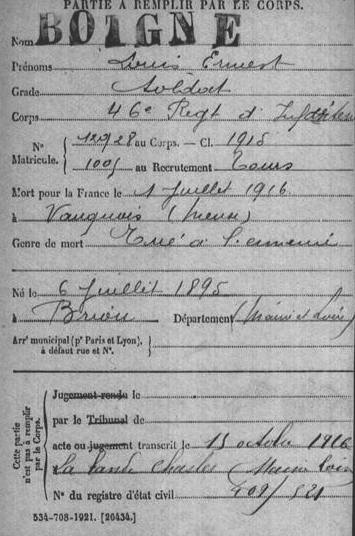 PARTIE À REMPLIR PAR LE CORPS.
Nom BOIGNE
Prénoms Louis Ernest
Grade Soldat
Corps 46e Regt d'Infanterie
N° Matricule. 12928 au Corps. — Cl. 1915
1005 au Recrutement Tours
Mort pour la France le 1 Juillet 1916
à Vauquois (Meuse)
Genre de mort Tué à l'ennemi
Né le 6 Juillet 1895
à Brion Département (Maine et Loire)
Arrt municipal (pr Paris et Lyon),
à défaut rue et N°.
Cette partie n'est pas à remplir par le Corps.
Jugement rendu le
par le Tribunal de
acte ou jugement transcrit le 15 octobre 1916
La Charles (Maine Loire
N° du registre d'état civil 409/521
534-708-1921. [20434.]